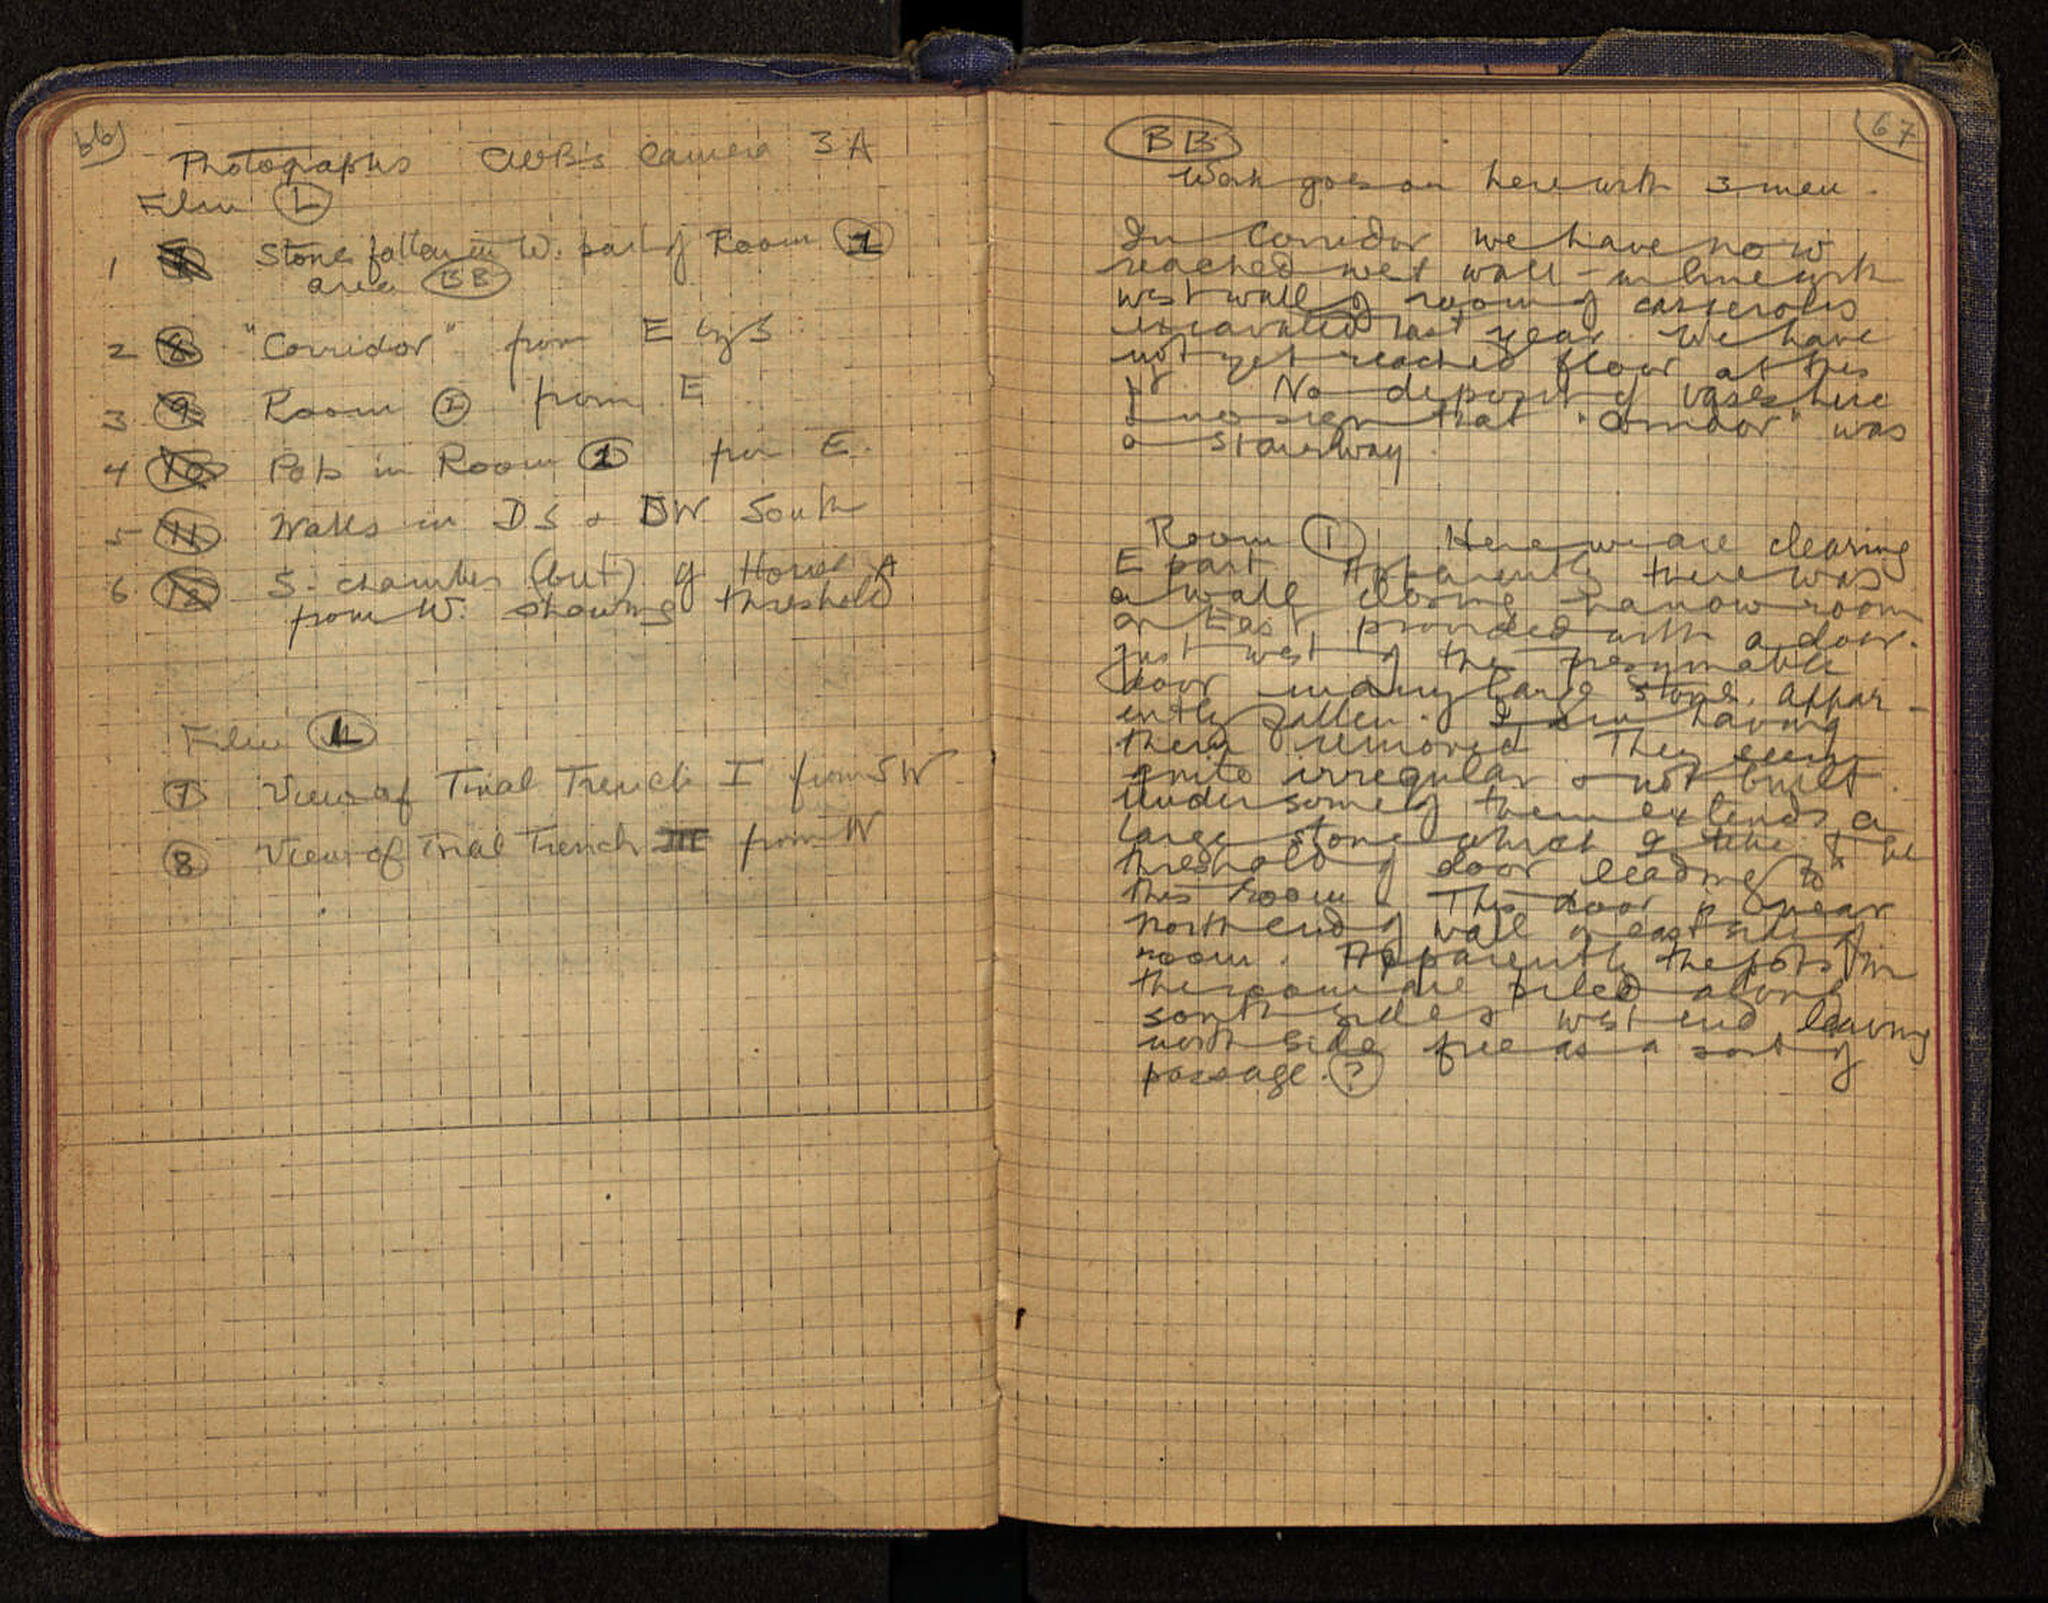 66
Photographs CWB's Camera 3A
Film L
1 Stones fallen in W. part of Room 1
area BB
2 8 "Corridor" from E by S
3 9 Room 2 from E
4 10 Pots in Room 1 from E.
5 11 Walls in DS & DW South
6 12 S. chamber (but) of House A
from W. showing threshold
Film L
7 View of Trial Trench I from SW
8 View of Trial Trench III from W
67
BB
Work goes on here with 3 men.
In Corridor we have now
reached west wall - in line with
west wall of room of casseroles
excavated last year. We have
not yet reached floor at this
No deposit of vases here
& no sign that "Corridor" was
a stairway.
Room 1 Here we are clearing
E part. Apparently there was
a wall closing narrow room
on East provided with a door.
Just west of the presumable
door many large stones, appar-
ently fallen. I am having
them removed. They seem
quite irregular & not built.
Under some of them extends a
large stone which I take to be
threshold of door leading to
this room. This door is near
north end of wall on east side of
room. Apparently the pots in
the room are piled along
south side & west end leaving
north side free as a sort of
passage. ?